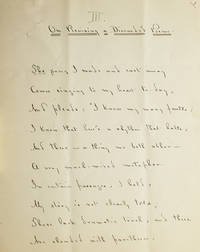 III.
On Revising a Discarded Poem.
The song I made and cast away
Comes singing to my heart to-day,
And pleads, "I know my many faults,
I know that here's a rhythm that halts,
And there — a thing no better —
A very much-mixed metaphor.
In certain passages, I hold,
My story is not clearly told,
I lack dramatic touch, and there
Are clouded with